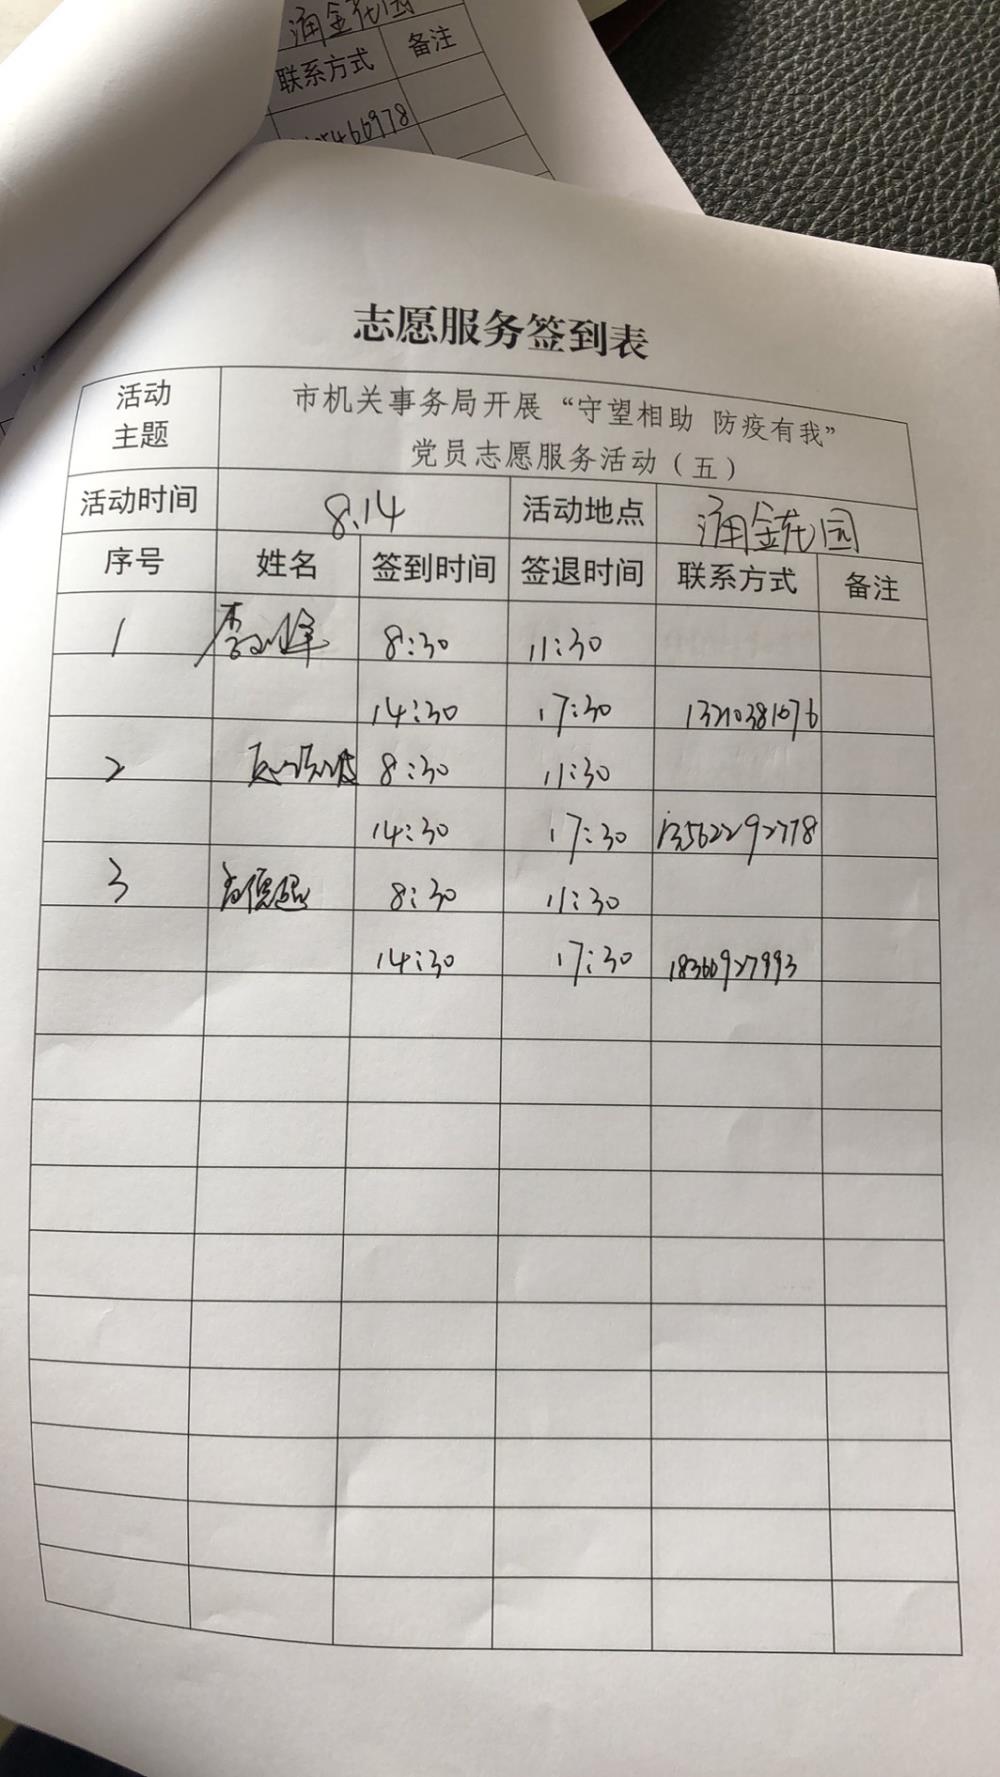 涌金花园
联系方式 备注
5466978
志愿服务签到表
活动主题 市机关事务局开展“守望相助 防疫有我”
党员志愿服务活动（五）
活动时间 8.14 活动地点 涌金花园
序号 姓名 签到时间 签退时间 联系方式 备注
1 8:30 11:30
14:30 17:30 13210381076
2 8:30 11:30
14:30 17:30 13562292778
3 8:30 11:30
14:30 17:30 18366927993